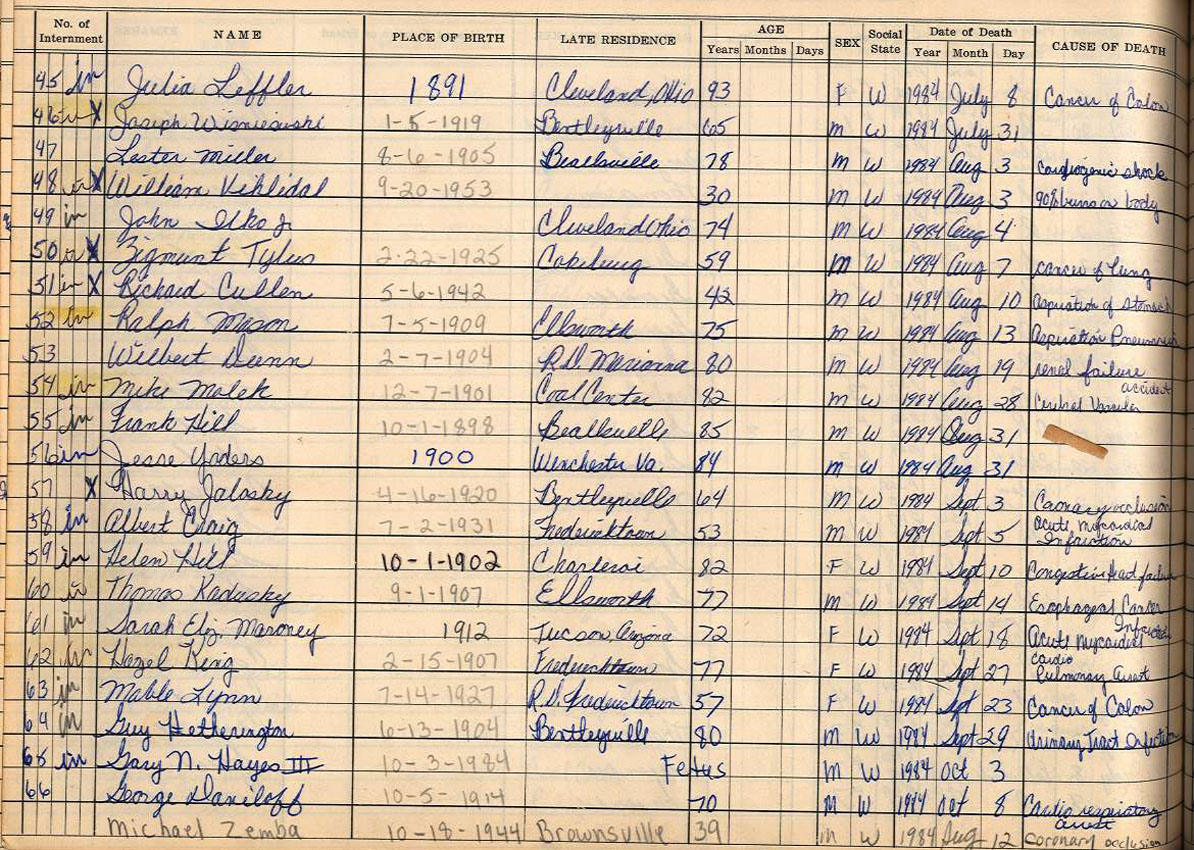 No. of Internment NAME PLACE OF BIRTH LATE RESIDENCE AGE Years Months Days SEX Social State Date of Death Year Month Day CAUSE OF DEATH
45 in Julia Leffler 1891 Cleveland, Ohio 93 F W 1984 July 8 Cancer of Colon
46 in X Joseph Wisniewski 1-5-1919 Bentleyville 65 M W 1984 July 31
47 Lester Miller 8-6-1905 Beallsville 78 M W 1984 Aug 3 Cardiogenic shock
48 in X William Viklidal 9-20-1953 30 M W 1984 Aug 3 90% burns on body
49 in John Ilko Jr Cleveland Ohio 74 M W 1984 Aug 4
50 in X Zigmunt Tylus 2-22-1925 Cokeburg 59 M W 1984 Aug 7 cancer of Lung
51 in X Richard Cullen 5-6-1942 42 M W 1984 Aug 10 Aspiration of Stomach
52 in Ralph Mason 7-5-1909 Ellsworth 75 M W 1984 Aug 13 Aspiration Pneumonia
53 Wilbert Dunn 2-7-1904 R.D. Marianna 80 M W 1984 Aug 19 renal failure
54 in Mike Molek 12-7-1901 Coal Center 82 M W 1984 Aug 28 Vascular accident
55 in Frank Hill 10-1-1898 Beallsville 85 M W 1984 Aug 31
56 in Jesse Ynders 1900 Winchester Va. 84 M W 1984 Aug 31
57 X Harry Jalosky 4-16-1920 Bentleyville 64 M W 1984 Sept 3 Coronary occlusion
58 in Albert Craig 7-2-1931 Fredericktown 53 M W 1984 Sept 5 Acute Myocardial Infarction
59 in Helen Hill 10-1-1902 Charleroi 82 F W 1984 Sept 10 Congestive heart failure
60 in Thomas Kadusky 9-1-1907 Ellsworth 77 M W 1984 Sept 14 Esophageal Cancer
61 in Sarah Eliz. Maroney 1912 Tucson, Arizona 72 F W 1984 Sept 18 Acute Myocardial Infarction
62 in Hazel King 2-15-1907 Fredericktown 77 F W 1984 Sept 27 Cardio Pulmonary Arrest
63 in Mable Lynn 7-14-1927 R.D. Fredericktown 57 F W 1984 Sept 23 Cancer of Colon
64 in Guy Hetherington 6-13-1904 Bentleyville 80 M W 1984 Sept 29 Urinary Tract Infection
65 in Gary N. Hayes III 10-3-1984 Fetus M W 1984 Oct 3
66 George Daniloff 10-5-1914 70 M W 1984 Oct 8 Cardio respiratory arrest
Michael Zemba 10-18-1944 Brownsville 39 m W 1984 Aug 12 coronary occlusion